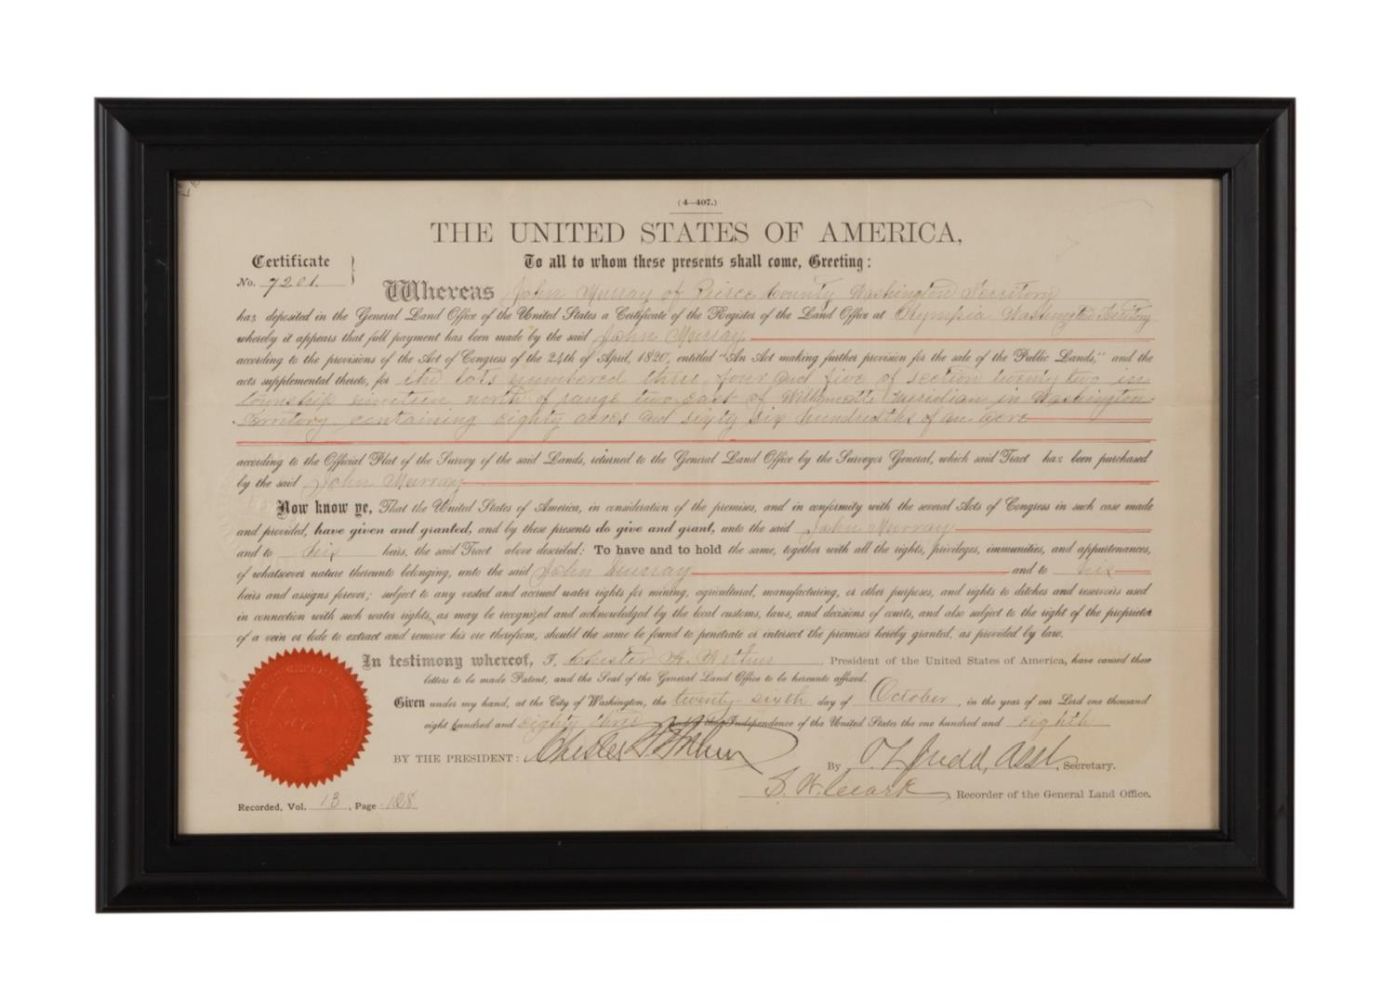 (4—407.)
THE UNITED STATES OF AMERICA,
Certificate
No. 7201.
To all to whom these presents shall come, Greeting:
Whereas John Murray of Pierce County Washington Territory
has deposited in the General Land Office of the United States a Certificate of the Register of the Land Office at Olympia Washington Territory
whereby it appears that full payment has been made by the said John Murray
according to the provisions of the Act of Congress of the 24th of April, 1820, entitled "An Act making further provision for the sale of the Public Lands," and the
acts supplemental thereto, for the lots numbered three, four and five of section twenty two in
township nineteen north of range two east of Willamette Meridian in Washington
Territory containing eighty acres and sixty six hundredths of an acre
according to the Official Plat of the Survey of the said Lands, returned to the General Land Office by the Surveyor General, which said Tract has been purchased
by the said John Murray
Now know ye, That the United States of America, in consideration of the premises, and in conformity with the several Acts of Congress in such case made
and provided, have given and granted, and by these presents do give and grant, unto the said John Murray
and to his heirs, the said Tract above described: To have and to hold the same, together with all the rights, privileges, immunities, and appurtenances,
of whatsoever nature thereunto belonging, unto the said John Murray and to his
heirs and assigns forever; subject to any vested and accrued water rights for mining, agricultural, manufacturing, or other purposes, and rights to ditches and reservoirs used
in connection with such water rights, as may be recognized and acknowledged by the local customs, laws, and decisions of courts, and also subject to the right of the proprietor
of a vein or lode to extract and remove his ore therefrom, should the same be found to penetrate or intersect the premises hereby granted, as provided by law.
In testimony whereof, I, Chester A. Arthur, President of the United States of America, have caused these
letters to be made Patent, and the Seal of the General Land Office to be hereunto affixed.
Given under my hand, at the City of Washington, the twenty sixth day of October, in the year of our Lord one thousand
eight hundred and eighty three Independence of the United States the one hundred and eighth
BY THE PRESIDENT: Chester A. Arthur
By Judd, Asst. Secretary.
S. W. Clark, Recorder of the General Land Office.
Recorded, Vol. 13, Page 188